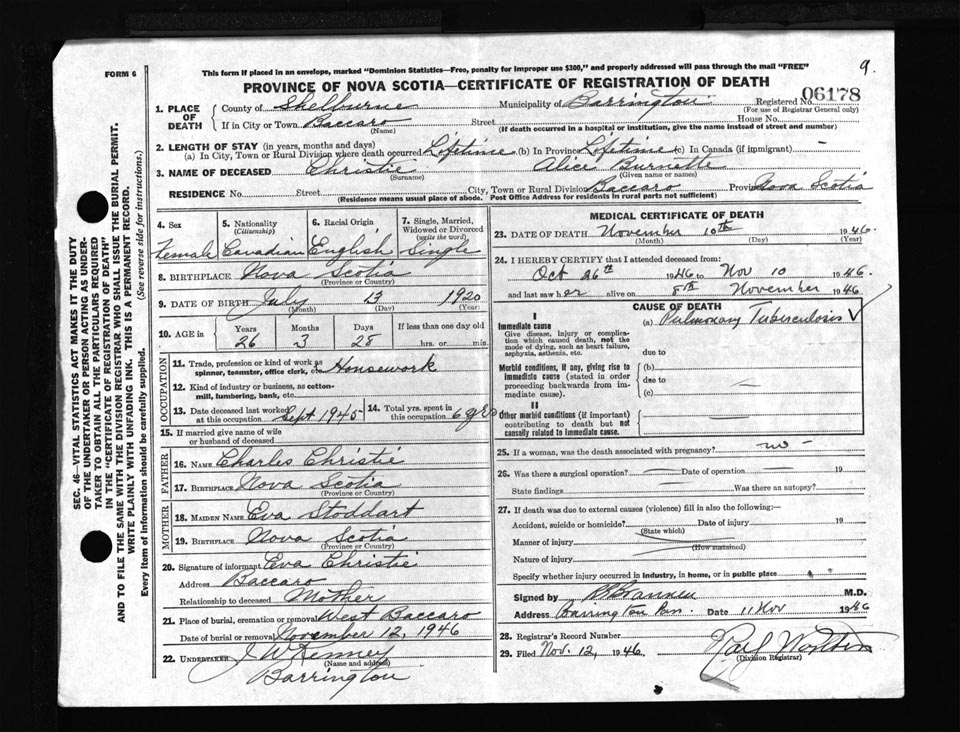 FORM 6
This form if placed in an envelope, marked "Dominion Statistics—Free, penalty for improper use $300," and properly addressed will pass through the mail "FREE"
9.
PROVINCE OF NOVA SCOTIA—CERTIFICATE OF REGISTRATION OF DEATH
1. PLACE OF DEATH
County of Shelburne Municipality of Barrington Registered No. 06178
(For use of Registrar General only)
If in City or Town Baccaro Street House No.
(Name) (If death occurred in a hospital or institution, give the name instead of street and number)
2. LENGTH OF STAY (in years, months and days)
(a) In City, Town or Rural Division where death occurred Lifetime (b) In Province Lifetime (c) In Canada (if immigrant) —
3. NAME OF DECEASED Christie Alice Burnette
(Surname) (Given name or names)
RESIDENCE No. Street City, Town or Rural Division Baccaro Province Nova Scotia
(Residence means usual place of abode. Post Office Address for residents in rural parts not sufficient)
4. Sex 5. Nationality (Citizenship) 6. Racial Origin 7. Single, Married, Widowed or Divorced (write the word)
Female Canadian English Single
8. BIRTHPLACE Nova Scotia
(Province or Country)
9. DATE OF BIRTH July 13 1920
(Month) (Day) (Year)
10. AGE in Years Months Days If less than one day old
26 3 28 hrs. or min.
OCCUPATION
11. Trade, profession or kind of work as spinner, teamster, office clerk, etc. Housework
12. Kind of industry or business, as cotton-mill, lumbering, bank, etc.
13. Date deceased last worked at this occupation Sept 1945 14. Total yrs. spent in this occupation 6 yrs
15. If married give name of wife or husband of deceased
FATHER
16. NAME Charles Christie
17. BIRTHPLACE Nova Scotia
(Province or Country)
MOTHER
18. MAIDEN NAME Eva Stoddart
19. BIRTHPLACE Nova Scotia
(Province or Country)
20. Signature of informant Eva Christie
Address Baccaro
Relationship to deceased Mother
21. Place of burial, cremation or removal West Baccaro
Date of burial or removal November 12, 1946
22. UNDERTAKER J W Kenney
(Name and address)
Barrington
MEDICAL CERTIFICATE OF DEATH
23. DATE OF DEATH November 10th 1946
(Month) (Day) (Year)
24. I HEREBY CERTIFY that I attended deceased from:
Oct 26th 1946 to Nov 10 1946.
and last saw her alive on 8th November 1946
CAUSE OF DEATH
I
Immediate cause (a) Pulmonary Tuberculosis
Give disease, injury or complication which caused death, not the mode of dying, such as heart failure, asphyxia, asthenia, etc.
due to
Morbid conditions, if any, giving rise to immediate cause (stated in order proceeding backwards from immediate cause).
(b)
due to
(c)
II
Other morbid conditions (if important) contributing to death but not causally related to immediate cause.
25. If a woman, was the death associated with pregnancy? no
26. Was there a surgical operation? Date of operation 19
State findings Was there an autopsy?
27. If death was due to external causes (violence) fill in also the following:—
Accident, suicide or homicide? Date of injury 19
(State which)
Manner of injury
(How sustained)
Nature of injury
Specify whether injury occurred in industry, in home, or in public place
Signed by M.D.
Address Date 11 Nov 1946
28. Registrar's Record Number
29. Filed Nov. 12, 1946.
(Division Registrar)
SEC. 46—VITAL STATISTICS ACT MAKES IT THE DUTY
OF THE UNDERTAKER OR PERSON ACTING AS UNDER-
TAKER TO OBTAIN ALL THE PARTICULARS REQUIRED
IN THE "CERTIFICATE OF REGISTRATION OF DEATH"
AND TO FILE THE SAME WITH THE DIVISION REGISTRAR WHO SHALL ISSUE THE BURIAL PERMIT.
WRITE PLAINLY WITH UNFADING INK. THIS IS A PERMANENT RECORD.
Every item of information should be carefully supplied. (See reverse side for instructions.)